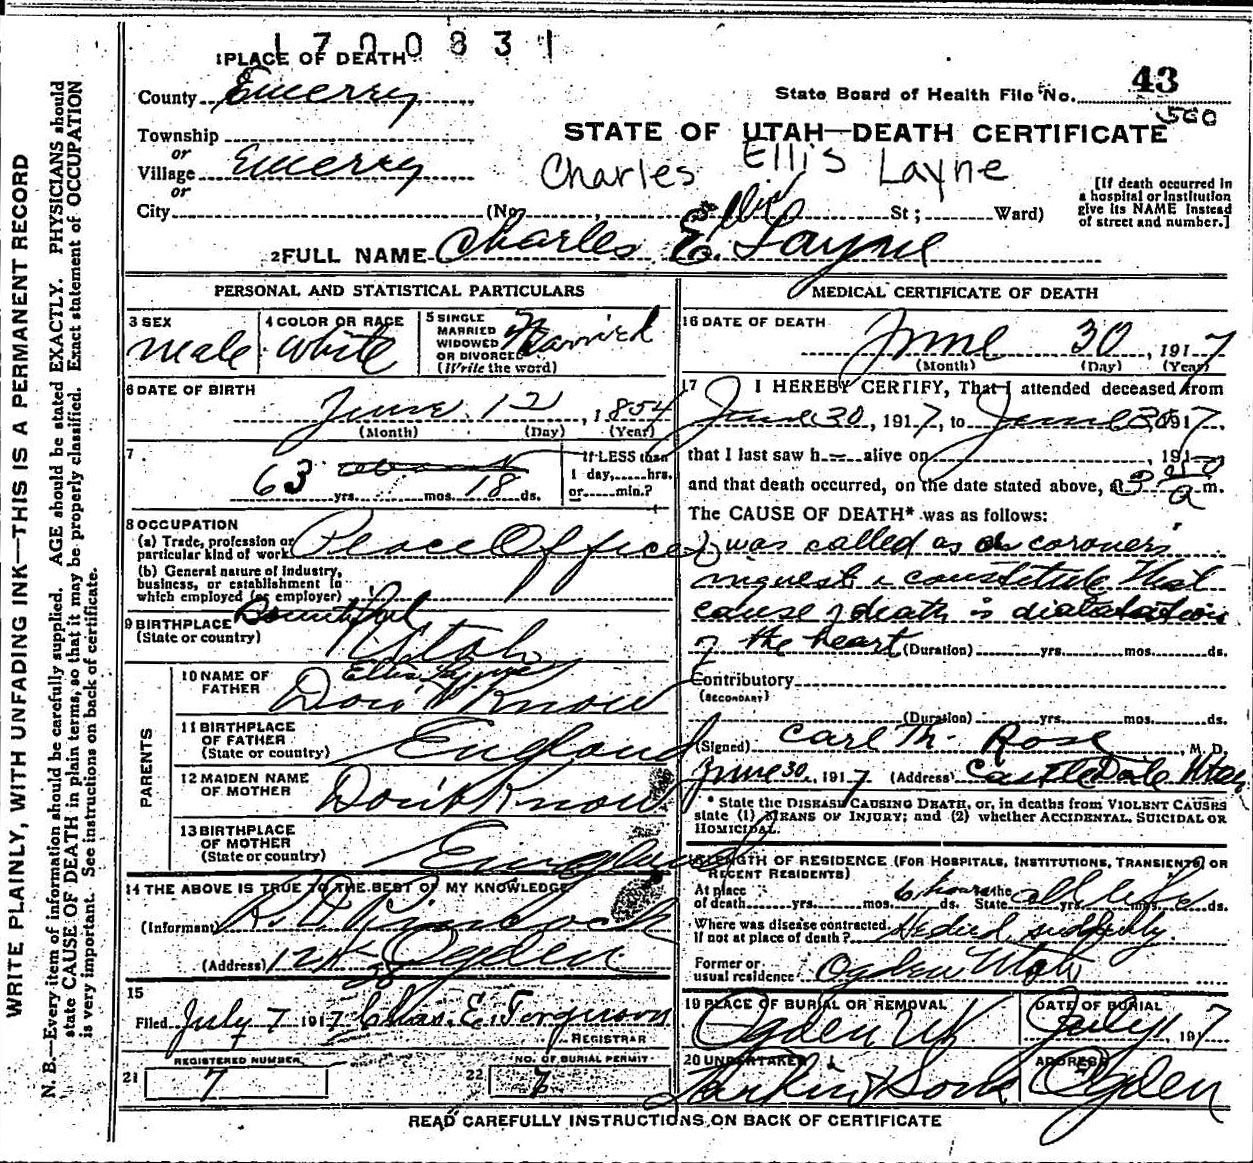 1700831
1 PLACE OF DEATH
County Emerry
State Board of Health File No. 43
560
STATE OF UTAH—DEATH CERTIFICATE
Township
or
Village Emerry
or
Charles Ellis Layne
[If death occurred in a hospital or institution give its NAME instead of street and number.]
City (No. , St; Ward)
Ellis
2 FULL NAME Charles E. Layne
PERSONAL AND STATISTICAL PARTICULARS
3 SEX
male
4 COLOR OR RACE
White
5 SINGLE
MARRIED
WIDOWED
OR DIVORCED
(Write the word)
Married
6 DATE OF BIRTH
June 12, 1854
(Month) (Day) (Year)
7
63 yrs. mos. 18 ds.
If LESS than
1 day, hrs.
or min.?
8 OCCUPATION
(a) Trade, profession or
particular kind of work
Peace Officer
(b) General nature of industry,
business, or establishment in
which employed (or employer)
9 BIRTHPLACE
(State or country)
Bountiful
Utah
PARENTS
10 NAME OF
FATHER
Ellis Layne
Don't Know
11 BIRTHPLACE
OF FATHER
(State or country)
England
12 MAIDEN NAME
OF MOTHER
Don't Know
13 BIRTHPLACE
OF MOTHER
(State or country)
England
14 THE ABOVE IS TRUE TO THE BEST OF MY KNOWLEDGE
(Informant)
(Address) Ogden
15
Filed July 7 1917 Chas. E. Ferguson
REGISTRAR
REGISTERED NUMBER
21 7
NO. OF BURIAL PERMIT
22 7
MEDICAL CERTIFICATE OF DEATH
16 DATE OF DEATH
June 30, 1917
(Month) (Day) (Year)
17 I HEREBY CERTIFY, That I attended deceased from
June 30, 1917, to June 30 1917
that I last saw h— alive on , 191
and that death occurred, on the date stated above, a 3 a m.
The CAUSE OF DEATH* was as follows:
I was called as a coroners
inquest & constitute that
cause of death is dialatation
of the heart (Duration) yrs. mos. ds.
Contributory
(SECONDARY)
(Duration) yrs. mos. ds.
(Signed) Carl Th Rose, M. D.
June 30, 1917 (Address) Castle Dale Utah
* State the DISEASE CAUSING DEATH, or, in deaths from VIOLENT CAUSES
state (1) MEANS OF INJURY; and (2) whether ACCIDENTAL, SUICIDAL OR
HOMICIDAL.
18 LENGTH OF RESIDENCE (FOR HOSPITALS, INSTITUTIONS, TRANSIENTS, OR
RECENT RESIDENTS)
At place
of death yrs. mos. 6 hours ds. In the State all life yrs. mos. ds.
Where was disease contracted
if not at place of death? He died suddenly.
Former or
usual residence Ogden Utah
19 PLACE OF BURIAL OR REMOVAL
Ogden Ut
DATE OF BURIAL
July 1, 1917
20 UNDERTAKER
Larkin & Sons
ADDRESS
Ogden
READ CAREFULLY INSTRUCTIONS ON BACK OF CERTIFICATE
WRITE PLAINLY, WITH UNFADING INK—THIS IS A PERMANENT RECORD
N. B.—Every item of information should be carefully supplied. AGE should be stated EXACTLY. PHYSICIANS should
state CAUSE OF DEATH in plain terms, so that it may be properly classified. Exact statement of OCCUPATION
is very important. See instructions on back of certificate.